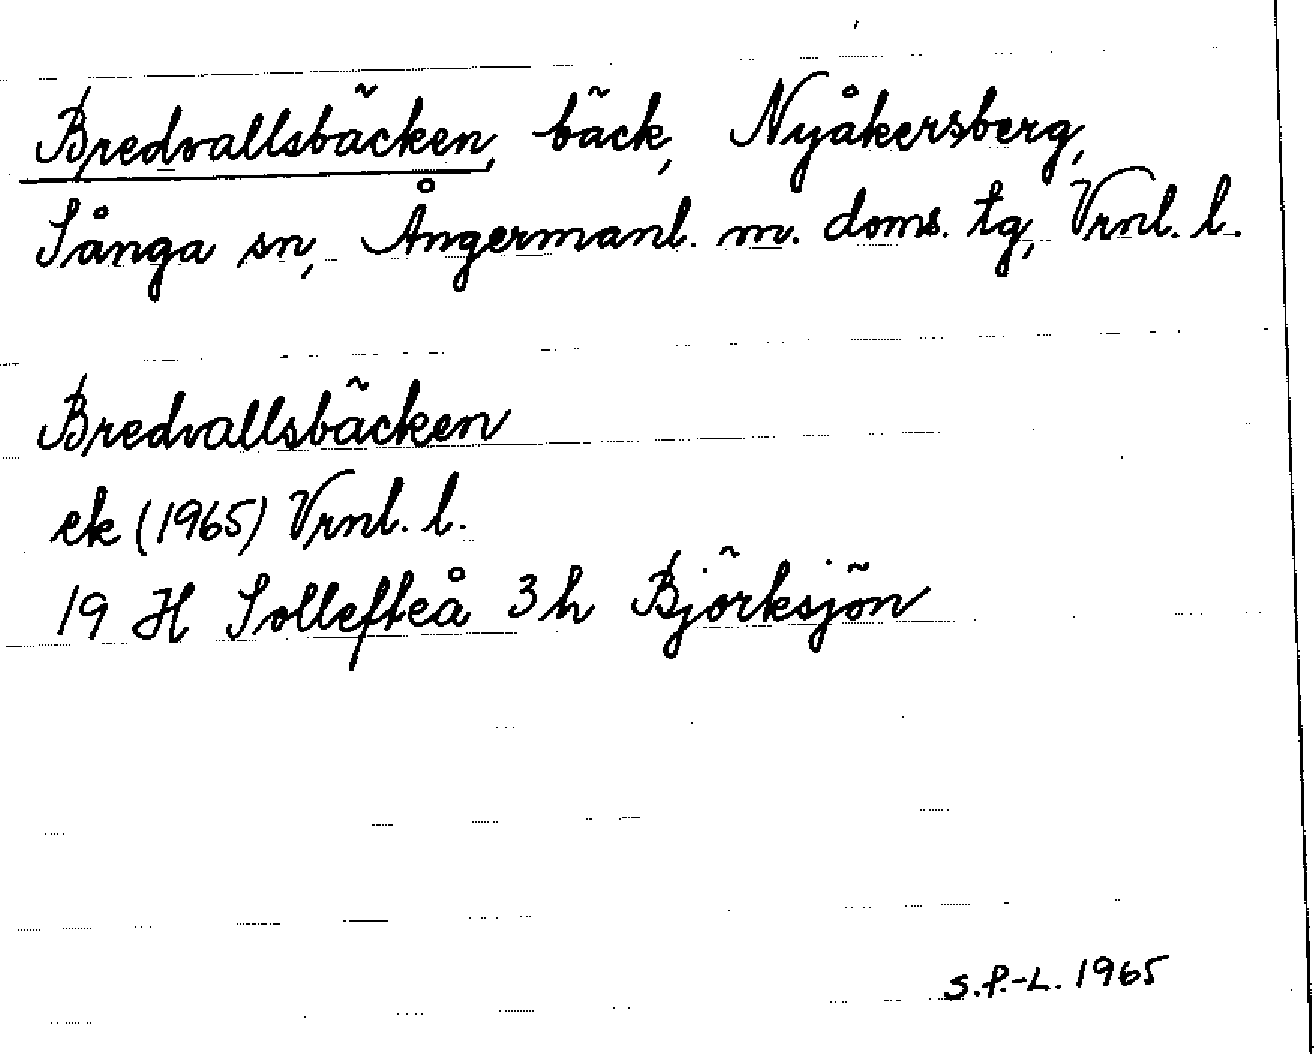 Bredvallsbäcken, bäck, Nyåkersberg,
Sånga sn, Ångermanl. m. doms. tg, Vrnl. l.
Bredvallsbäcken
ek (1965) Vrnl. l.
19 H Sollefteå 3h Björksjön
S.P.-L. 1965